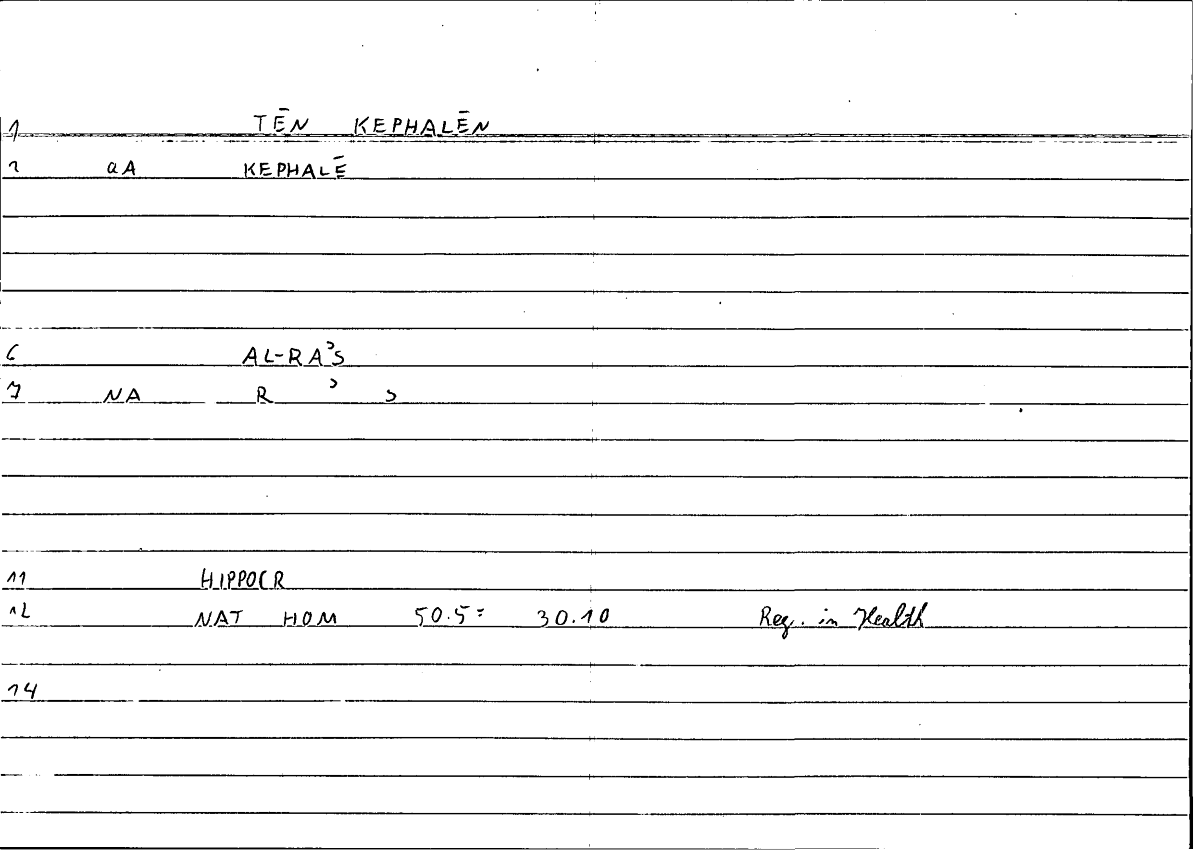 1 TĒN KEPHALĒN
2 aA KEPHALĒ
6 AL-RAʾS
7 NA R ʾ S
11 HIPPOCR
12 NAT HOM 50.5= 30.10 Reg. in Health
14